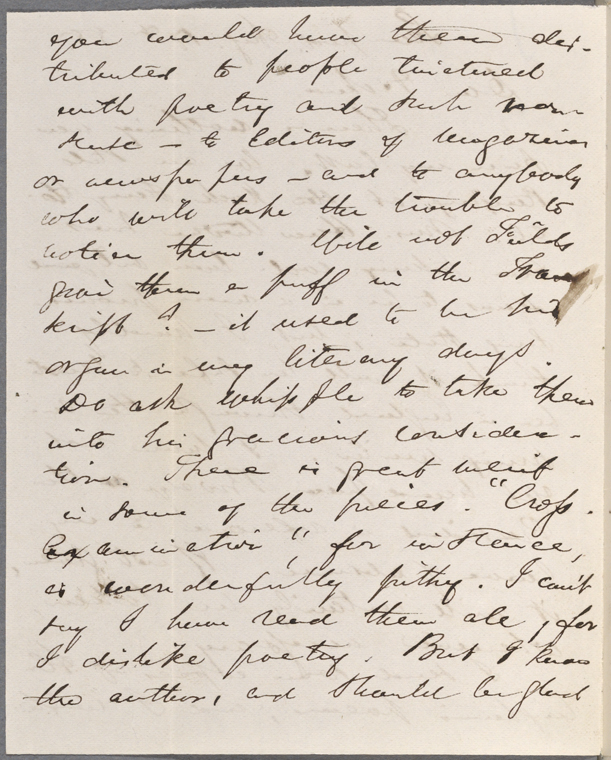 you would have them dis-
tributed to people tinctured
with poetry and such non-
sense — to Editors of Magazines
or newspapers — and to anybody
who will take the trouble to
notice them. Will not Fields
give them a puff in the Tran
script? — it used to be his
organ in my literary days.
Do ask Whipple to take them
into his gracious consider-
tion. There is great merit
in some of the pieces. "Cross-
Examination", for instance,
is wonderfully pithy. I can't
say I have read them all, for
I dislike poetry. But I know
the author, and should be glad